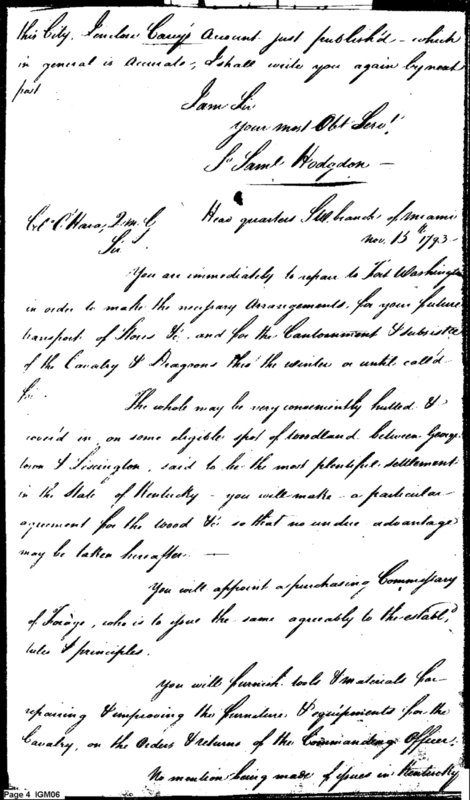 this City, I enclose Carey's Account just publish'd - which
in general is accurate, I shall write you again by next
post
I am Sir
your most Obt Servt
Saml Hodgdon -
Head quarters S W branch of Miami
Nov. 13th 1793 -
Col O'Hara Q M G
Sir
You are immediately to repair to Fort Washington
in order to make the necessary arrangements for your future
transport of Stores &c. and for the Cantonment & subsistce
of the Cavalry & Dragoons thro' the winter or until call'd
for.
The whole may be very conveniently hutted &
cover'd in on some eligible spot of woodland between George
town & Lexington, said to be the most plentiful settlement
in the State of Kentucky - you will make a particular
agreement for the wood &c so that no undue advantage
may be taken hereafter. -
You will appoint a purchasing Commissary
of Forage, who is to issue the same agreeably to the establd
rules & principles.
You will furnish tools & materials for
repairing & improving the furniture & equipments for the
Cavalry, on the Orders & returns of the Commanding Officer.
No mention being made of issues in Kentucky
Page 4 IGM06